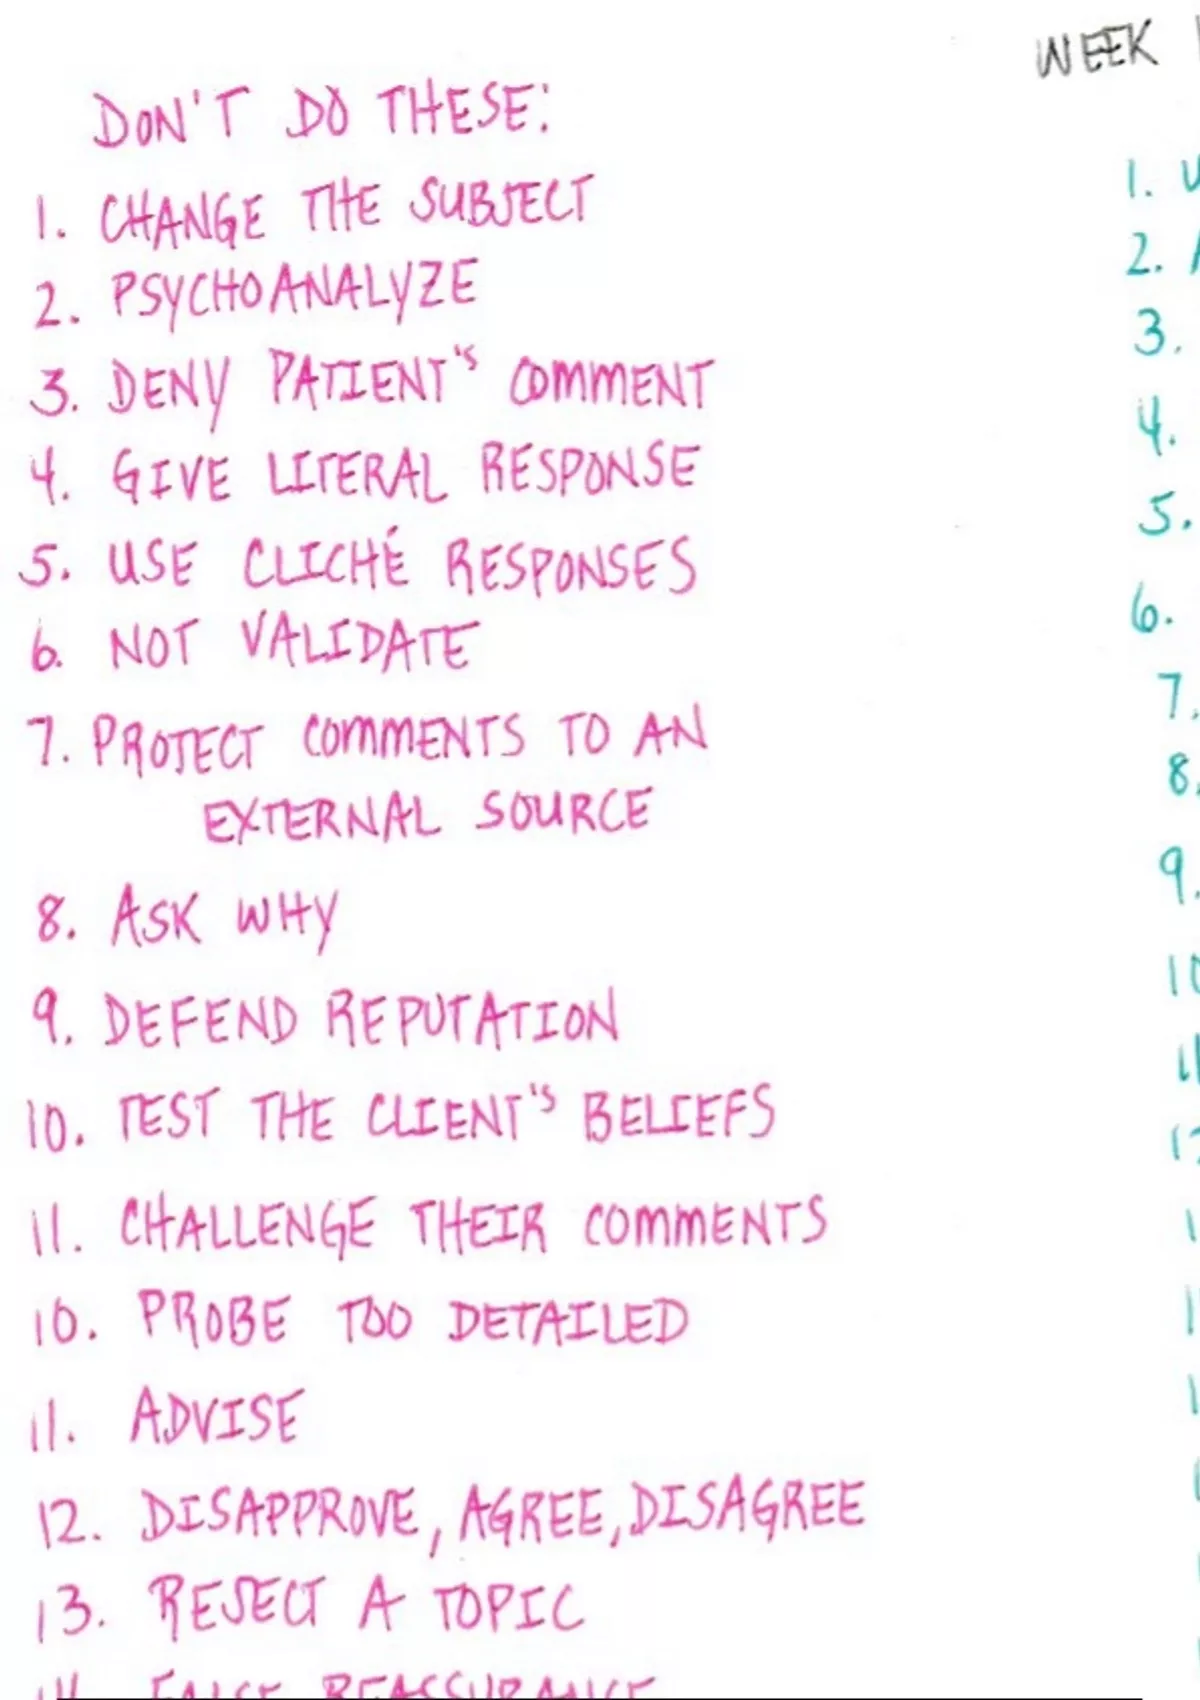 WEEK
DON'T DO THESE:
1. CHANGE THE SUBJECT
2. PSYCHOANALYZE
3. DENY PATIENT'S COMMENT
4. GIVE LITERAL RESPONSE
5. USE CLICHÉ RESPONSES
6. NOT VALIDATE
7. PROJECT COMMENTS TO AN
EXTERNAL SOURCE
8. ASK WHY
9. DEFEND REPUTATION
10. TEST THE CLIENT'S BELIEFS
11. CHALLENGE THEIR COMMENTS
10. PROBE TOO DETAILED
11. ADVISE
12. DISAPPROVE, AGREE, DISAGREE
13. REJECT A TOPIC
14. FALSE REASSURANCE
1.
2.
3.
4.
5.
6.
7.
8.
9.
10
11